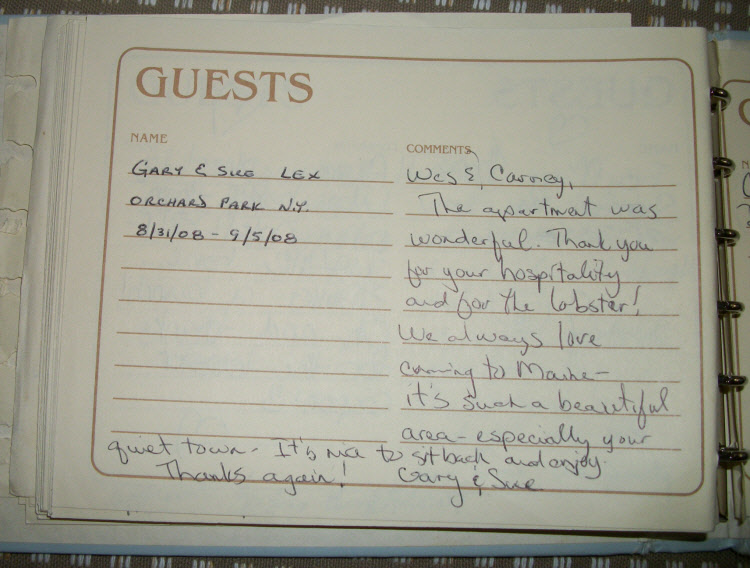 GUESTS
NAME
COMMENTS
GARY & SUE LEX
ORCHARD PARK N.Y.
8/31/08 - 9/5/08
Wes &
The apartment was
wonderful. Thank you
for your hospitality
and for the lobster!
We always love
coming to Maine-
it's such a beautiful
area- especially your
quiet town. It's nice to sit back and enjoy.
Thanks again! Gary & Sue